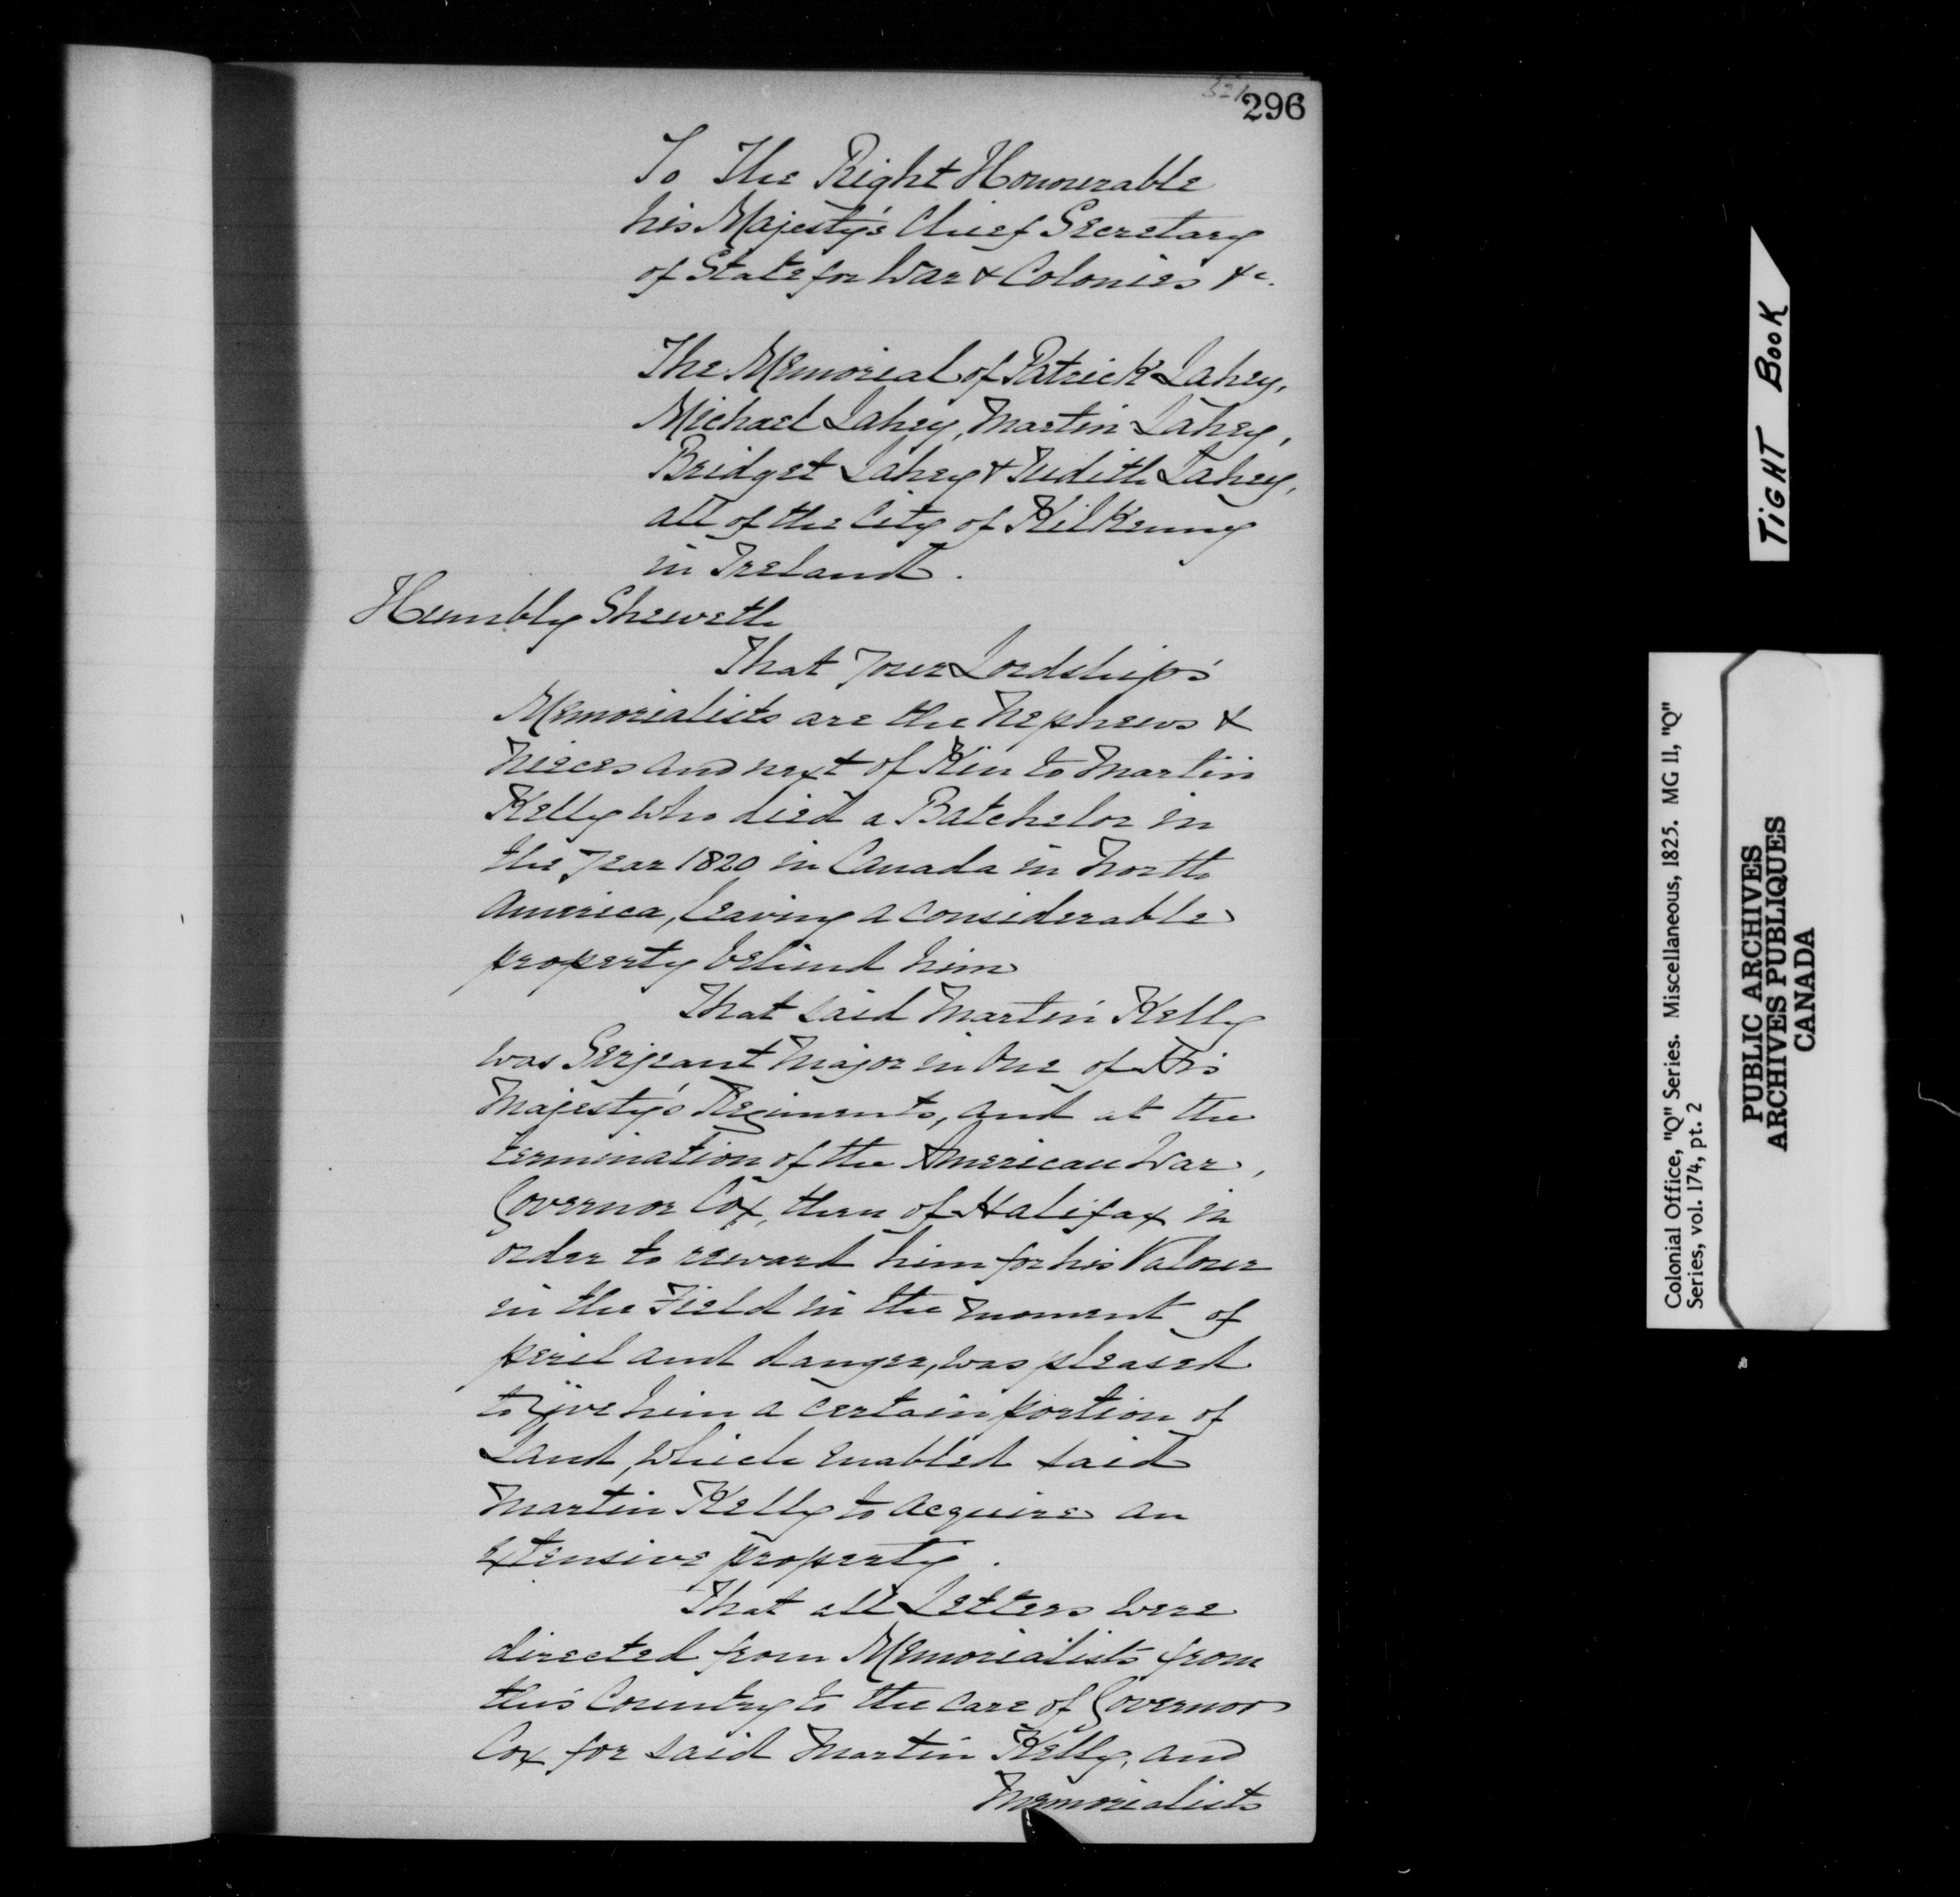 321
296
To The Right Honourable
his Majesty's Chief Secretary
of State for War & Colonies &c.
The Memorial of Patrick Lahey,
Michael Lahey, Martin Lahey,
Bridget Lahey & Judith Lahey,
all of the City of Kilkenny
in Ireland.
Humbly Sheweth
That your Lordship's
Memorialists are the Nephews &
Nieces and next of Kin to Martin
Kelly who died a Batchelor in
the year 1820 in Canada in North
America, leaving a considerable
property behind him
That said Martin Kelly
was Serjeant Major in One of His
Majesty's Regiments, and at the
termination of the American War,
Governor Cox, then of Halifax in
order to reward him for his Valour
in the Field in the moment of
peril and danger, was pleased
to give him a certain portion of
Land, which enabled said
Martin Kelly to acquire an
extensive property.
That all Letters were
directed from Memorialists from
this Country to the care of Governor
Cox for said Martin Kelly, and
Memorialists
TIGHT BOOK
Colonial Office, "Q" Series. Miscellaneous, 1825. MG 11, "Q"
Series, vol. 174, pt. 2
PUBLIC ARCHIVES
ARCHIVES PUBLIQUES
CANADA